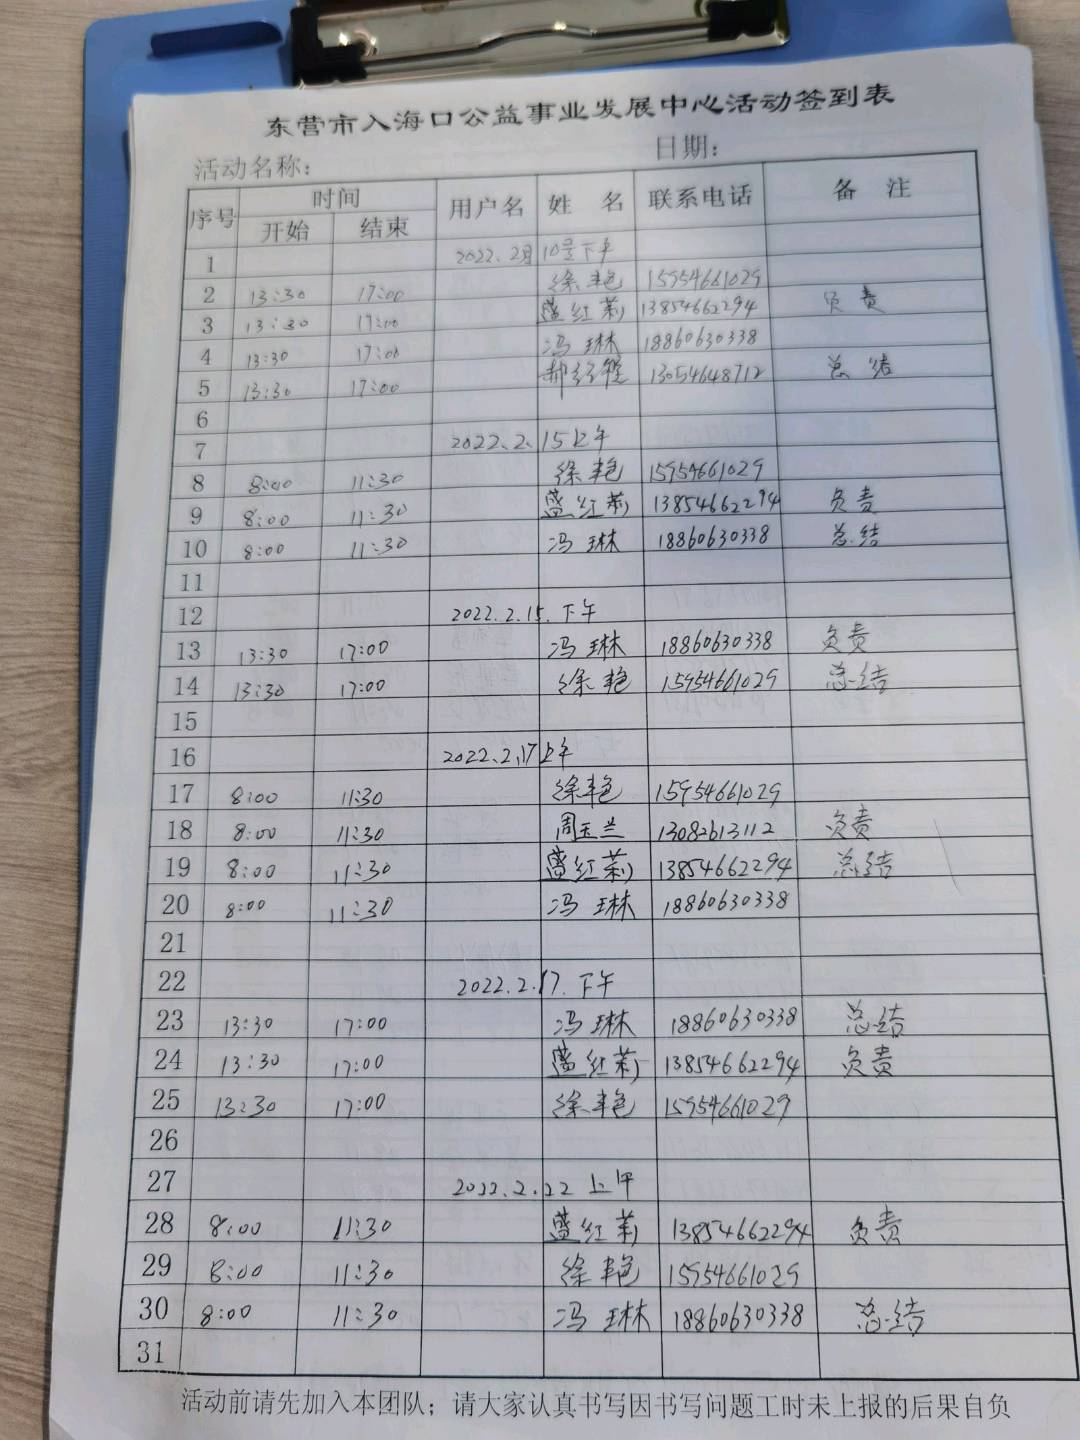 东营市入海口公益事业发展中心活动签到表
活动名称： 日期：
序号 时间 用户名 姓 名 联系电话 备 注
开始 结束
1 2022.2月10号下午
2 13:30 17:00 徐艳 15954661029
3 13:30 17:00 盛红莉 13854662294 负责
4 13:30 17:00 冯琳 18860630338
5 13:30 17:00 郝经雅 13054648712 总结
6
7 2022.2.15上午
8 8:00 11:30 徐艳 15954661029
9 8:00 11:30 盛红莉 13854662294 负责
10 8:00 11:30 冯琳 18860630338 总结
11
12 2022.2.15.下午
13 13:30 17:00 冯琳 18860630338 负责
14 13:30 17:00 徐艳 15954661029 总结
15
16 2022.2.17上午
17 8:00 11:30 徐艳 15954661029
18 8:00 11:30 周玉兰 13082613112 负责
19 8:00 11:30 盛红莉 13854662294 总结
20 8:00 11:30 冯琳 18860630338
21
22 2022.2.17.下午
23 13:30 17:00 冯琳 18860630338 总结
24 13:30 17:00 盛红莉 13854662294 负责
25 13:30 17:00 徐艳 15954661029
26
27 2022.2.22 上午
28 8:00 11:30 盛红莉 13854662294 负责
29 8:00 11:30 徐艳 15954661029
30 8:00 11:30 冯琳 18860630338 总结
31
活动前请先加入本团队；请大家认真书写因书写问题工时未上报的后果自负